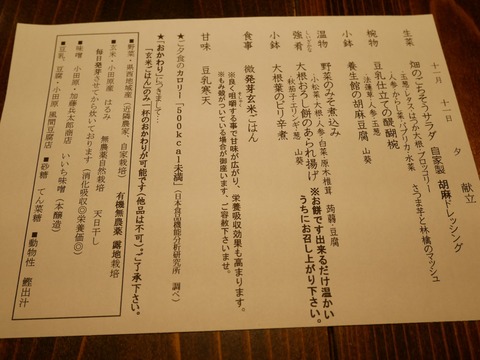 十一月 十一日 夕 献立
生菜 畑のごちそうサラダ 自家製 胡麻ドレッシング
・玉葱・レタス・はつか大根・ブロッコリー
・人参・からし菜・パプリカ・水菜 さつま芋と林檎のマッシュ
椀物 豆乳仕立ての醍醐椀
・法蓮草・人参・玉葱
小鉢 養生館の胡麻豆腐 山葵
温物 野菜のみそ煮込み
・小松菜・大根・人参・白菜・原木椎茸 蒟蒻・豆腐
強肴 大根おろし餅のあられ揚げ ※お餅です出来るだけ温かい
・秋茄子・エリンギ・葱 山葵 うちにお召し上がり下さい。
小鉢 大根葉のピリ辛煮
食事 微発芽玄米ごはん
※良く咀嚼する事で甘味が広がり、栄養吸収効果も高まります。
※もみ殻がついている場合が御座います。ご容赦下さいませ。
甘味 豆乳寒天
★ご夕食のカロリー「500kcal未満」(日本食品機能分析研究所 調べ)
★「おかわり」につきまして:
「玄米ごはん」のみ一杯のおかわりが可能です(他品は不可)ご了承下さい。
■野菜・県西地域産(近隣農家、自家栽培) 有機無農薬 露地栽培
■玄米・小田原産 はるみ 無農薬自然栽培 天日干し
毎日発芽させてから炊いております(消化吸収◎栄養価◎)
■味噌 小田原・加藤兵太郎商店 いいち味噌(本醸造)
■豆乳、豆腐・小田原 風間豆腐店 ■砂糖 てん菜糖 ■動物性 鰹出汁